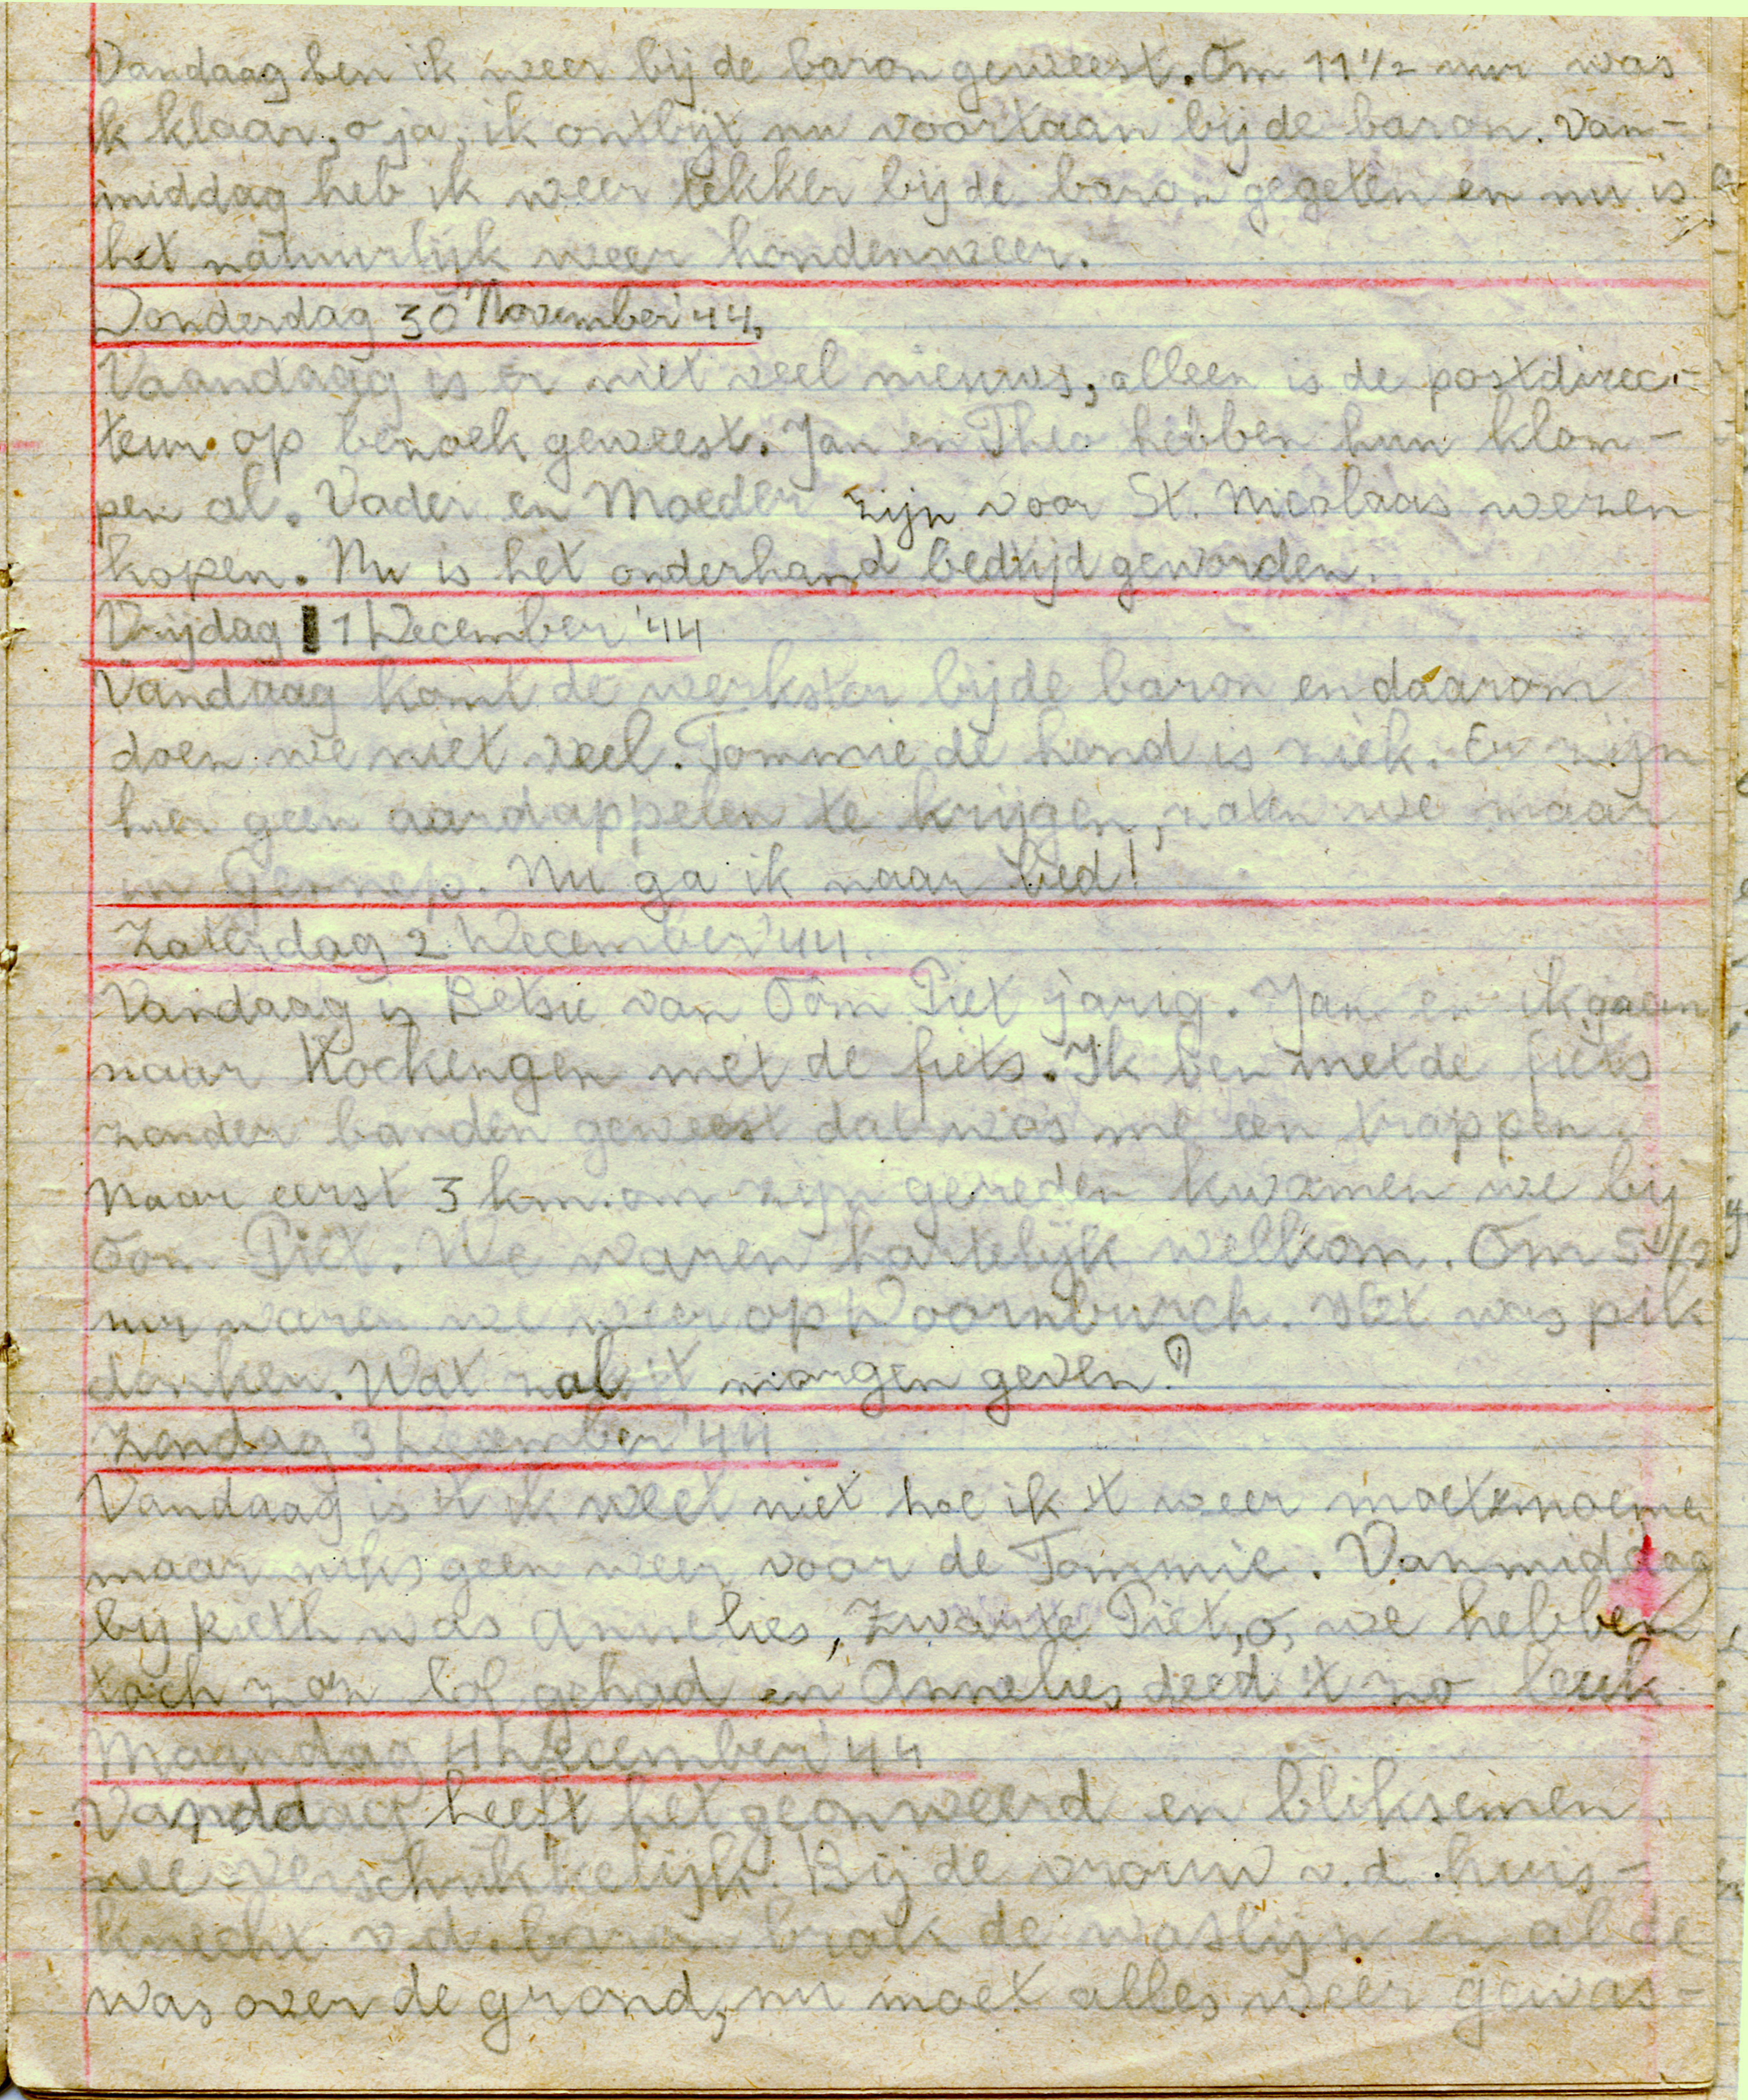 Vandaag ben ik weer bij de baron geweest. Om 11 1/2 uur was
ik klaar, o ja, ik ontbijt nu voortaan bij de baron. Van-
middag heb ik weer lekker bij de baron gegeten en nu is
het natuurlijk weer hondenweer.
Donderdag 30 November '44.
Vaandaag is er niet veel nieuws, alleen is de postdirec-
teur op bezoek geweest. Jan en Theo hebben hun klom-
pen al. Vader en Moeder zijn voor St. Nicolaas wezen
kopen. Nu is het onderhand bedtijd geworden.
Vrijdag 1 December '44
Vandaag komt de werkster bij de baron en daarom
doen we niet veel. Tommie de hond is ziek. Er zijn
hier geen aardappelen te krijgen, zaten we maar
in Gennep. Nu ga ik naar bed!
Zaterdag 2 December '44.
Vandaag is Betsie van Oom Piet jarig. Jan en ik gaan
naar Kockengen met de fiets. Ik ben met de fiets
zonder banden geweest dat was me een trappen.
Naar eerst 3 km. om zijn gereden kwamen we bij
Oom Piet. We waren hartelijk welkom. Om 5 1/2
uur waren we weer op Doornburch. Het was pik
donker. Wat zal 't morgen geven?
Zondag 3 December '44
Vandaag is 't ik weet niet hoe ik 't weer moet noeme
maar niks geen weer voor de Tommie. Vanmiddag
bij was Annelies, Zwarte Piet, o, we hebben
toch zo'n lol gehad en Annelies deed 't zo leuk
Maandag 4 December '44
Vandaag heeft het geonweerd en bliksemen
nee verschrikkelijk. Bij de vrouw v.d. huis-
knecht v.d. baron brak de waslijn en al de
was over de grond, nu moet alles weer gewas-